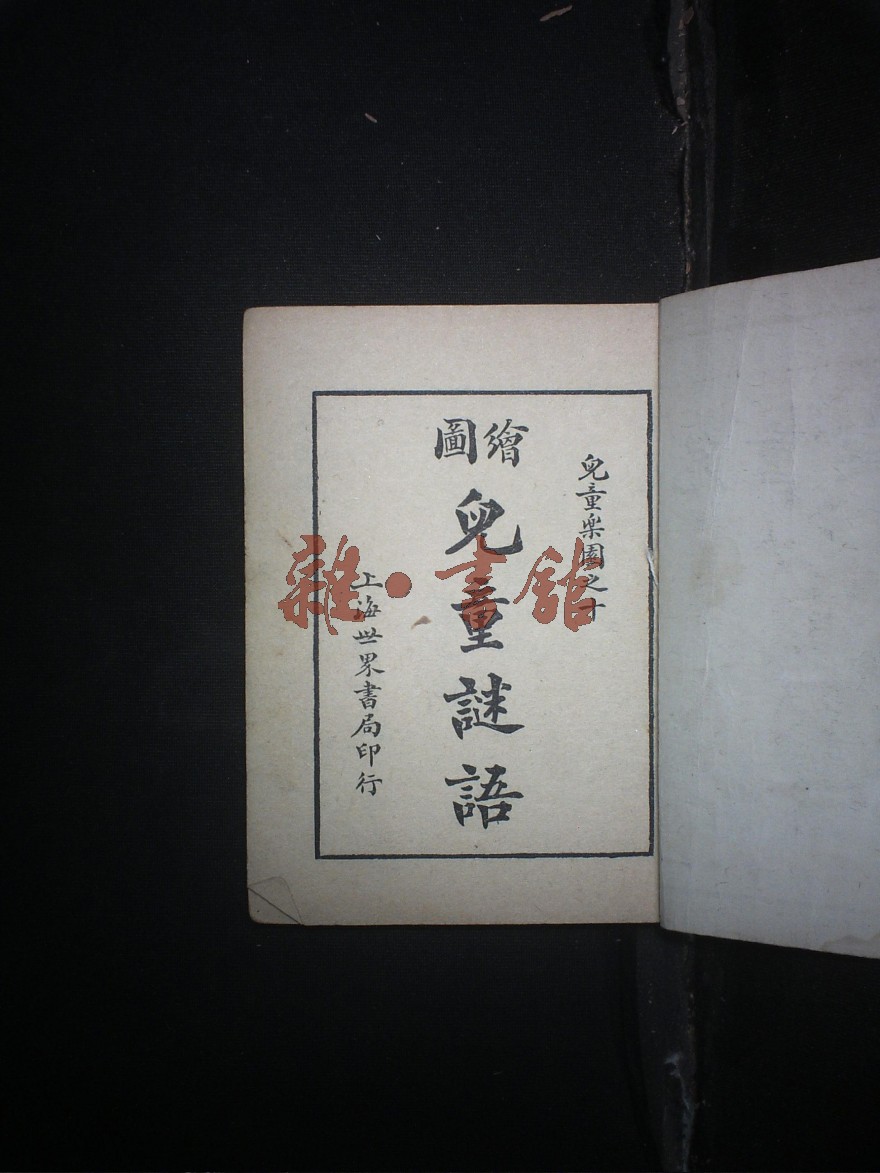 兒童樂園之十
繪圖
兒童謎語
上海世界書局印行
雜·書館